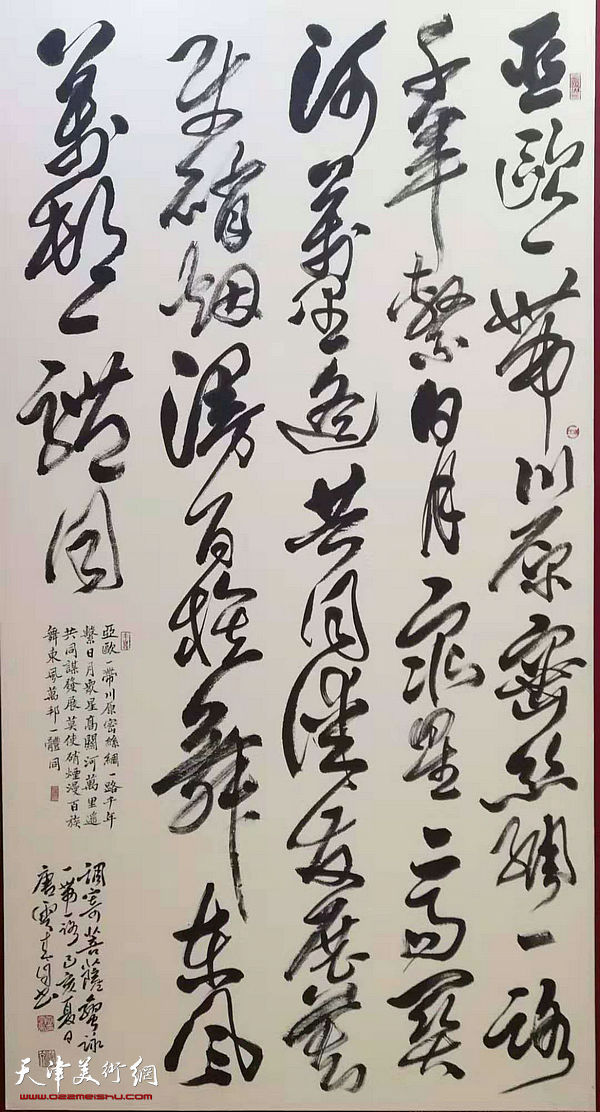 亞歐一帶川原密絲綢一路
千年繫日月眾星高關
河萬里遙共同謀發展莫
使硝烟漫百族舞東風
萬邦一體同
亞歐一帶川原密絲綢一路千年
繫日月眾星高關河萬里遙
共同謀發展莫使硝煙漫百族
舞東風萬邦一體同
調寄菩薩蠻詠
一帶一路己亥夏日
唐雲來
天津美術網
www.022meishu.com